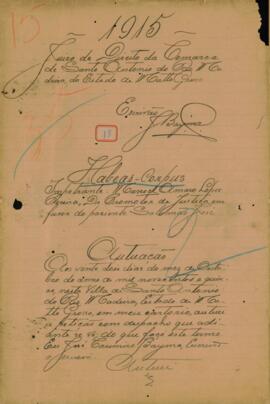 15
1915
Juizo de Direito da Comarca
de Santo Antonio do Rio Ma-
deira, do Estado de Matto Grosso
Escrivão
J. Bayma
15
Habeas-Corpus
Impetrante Manoel Amaro Lopes
Promotor de Justiça em
favor do paciente
Autuação
Aos vinte dias do mez de
de mil novecentos e quin-
ze nesta Villa de Santo Antonio
do Rio Madeira, Estado de Mat-
to Grosso, em meu cartorio, autuo
a petição com despacho que adi-
ante se vê, do que faço este termo
Eu Bayma Escrivão